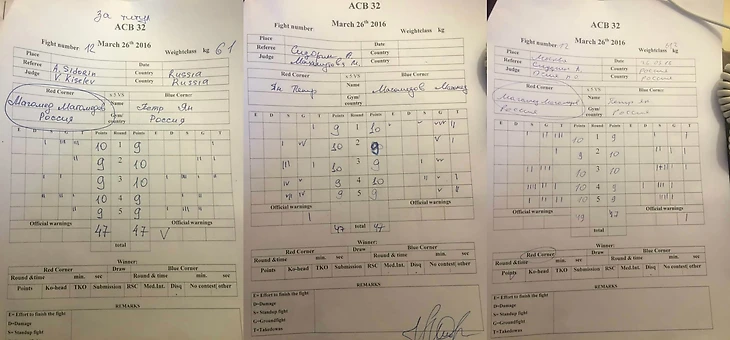 за титул
ACB 32
March 26th 2016
Fight number 12
Weightclass kg 61
Place
Date
Referee A. Sidorin
Country Russia
Judge V. Kiselev
Country Russia
Red Corner
x 5 VS
Blue Corner
Магомед Магомедов
Name
Петр Ян
Россия
Gym/ country
Россия
E D S G T Points Round Points E D S G T
10 1 9
9 2 10
9 3 10
10 4 9
9 5 9
Official warnings
Official warnings
47 47 V
total
Winner:
Red Corner
Draw
Blue Corner
Round & time min. sec
Round & time min. sec
Points Ko-head TKO Submission RSC Med.Int. Disq No contest other
REMARKS
E= Effort to finish the fight
D=Damage
S= Standup fight
G=Groundfight
T=Takedowns
ACB 32
March 26th 2016
Fight number
Weightclass kg
Place
Date
Referee
Country
Judge
Country
Red Corner
x 5 VS
Blue Corner
Ян Петр
Name
Gym/ country
E D S G T Points Round Points E D S G T
9 1 10
10 2 9
10 3 9
9 4 10
9 5 9
Official warnings
Official warnings
47 47
total
Winner:
Red Corner
Draw
Blue Corner
Round & time min. sec
Round & time min. sec
Points Ko-head TKO Submission RSC Med.Int. Disq No contest other
REMARKS
E= Effort to finish the fight
D=Damage
S= Standup fight
G=Groundfight
T=Takedowns
ACB 32
March 26th 2016
Fight number 12
Weightclass kg
Place Москва
Date
Referee
Country Россия
Judge
Country Россия
Red Corner
x 5 VS
Blue Corner
Магомед Магомедов
Name
Петр Ян
Россия
Gym/ country
Россия
E D S G T Points Round Points E D S G T
10 1 9
9 2 10
10 3 10
10 4 9
10 5 9
Official warnings
Official warnings
47
total
Winner:
Red Corner
Draw
Blue Corner
Round & time min. sec
Round & time min. sec
Points Ko-head TKO Submission RSC Med.Int. Disq No contest other
REMARKS
E= Effort to finish the fight
D=Damage
S= Standup fight
G=Groundfight
T=Takedowns